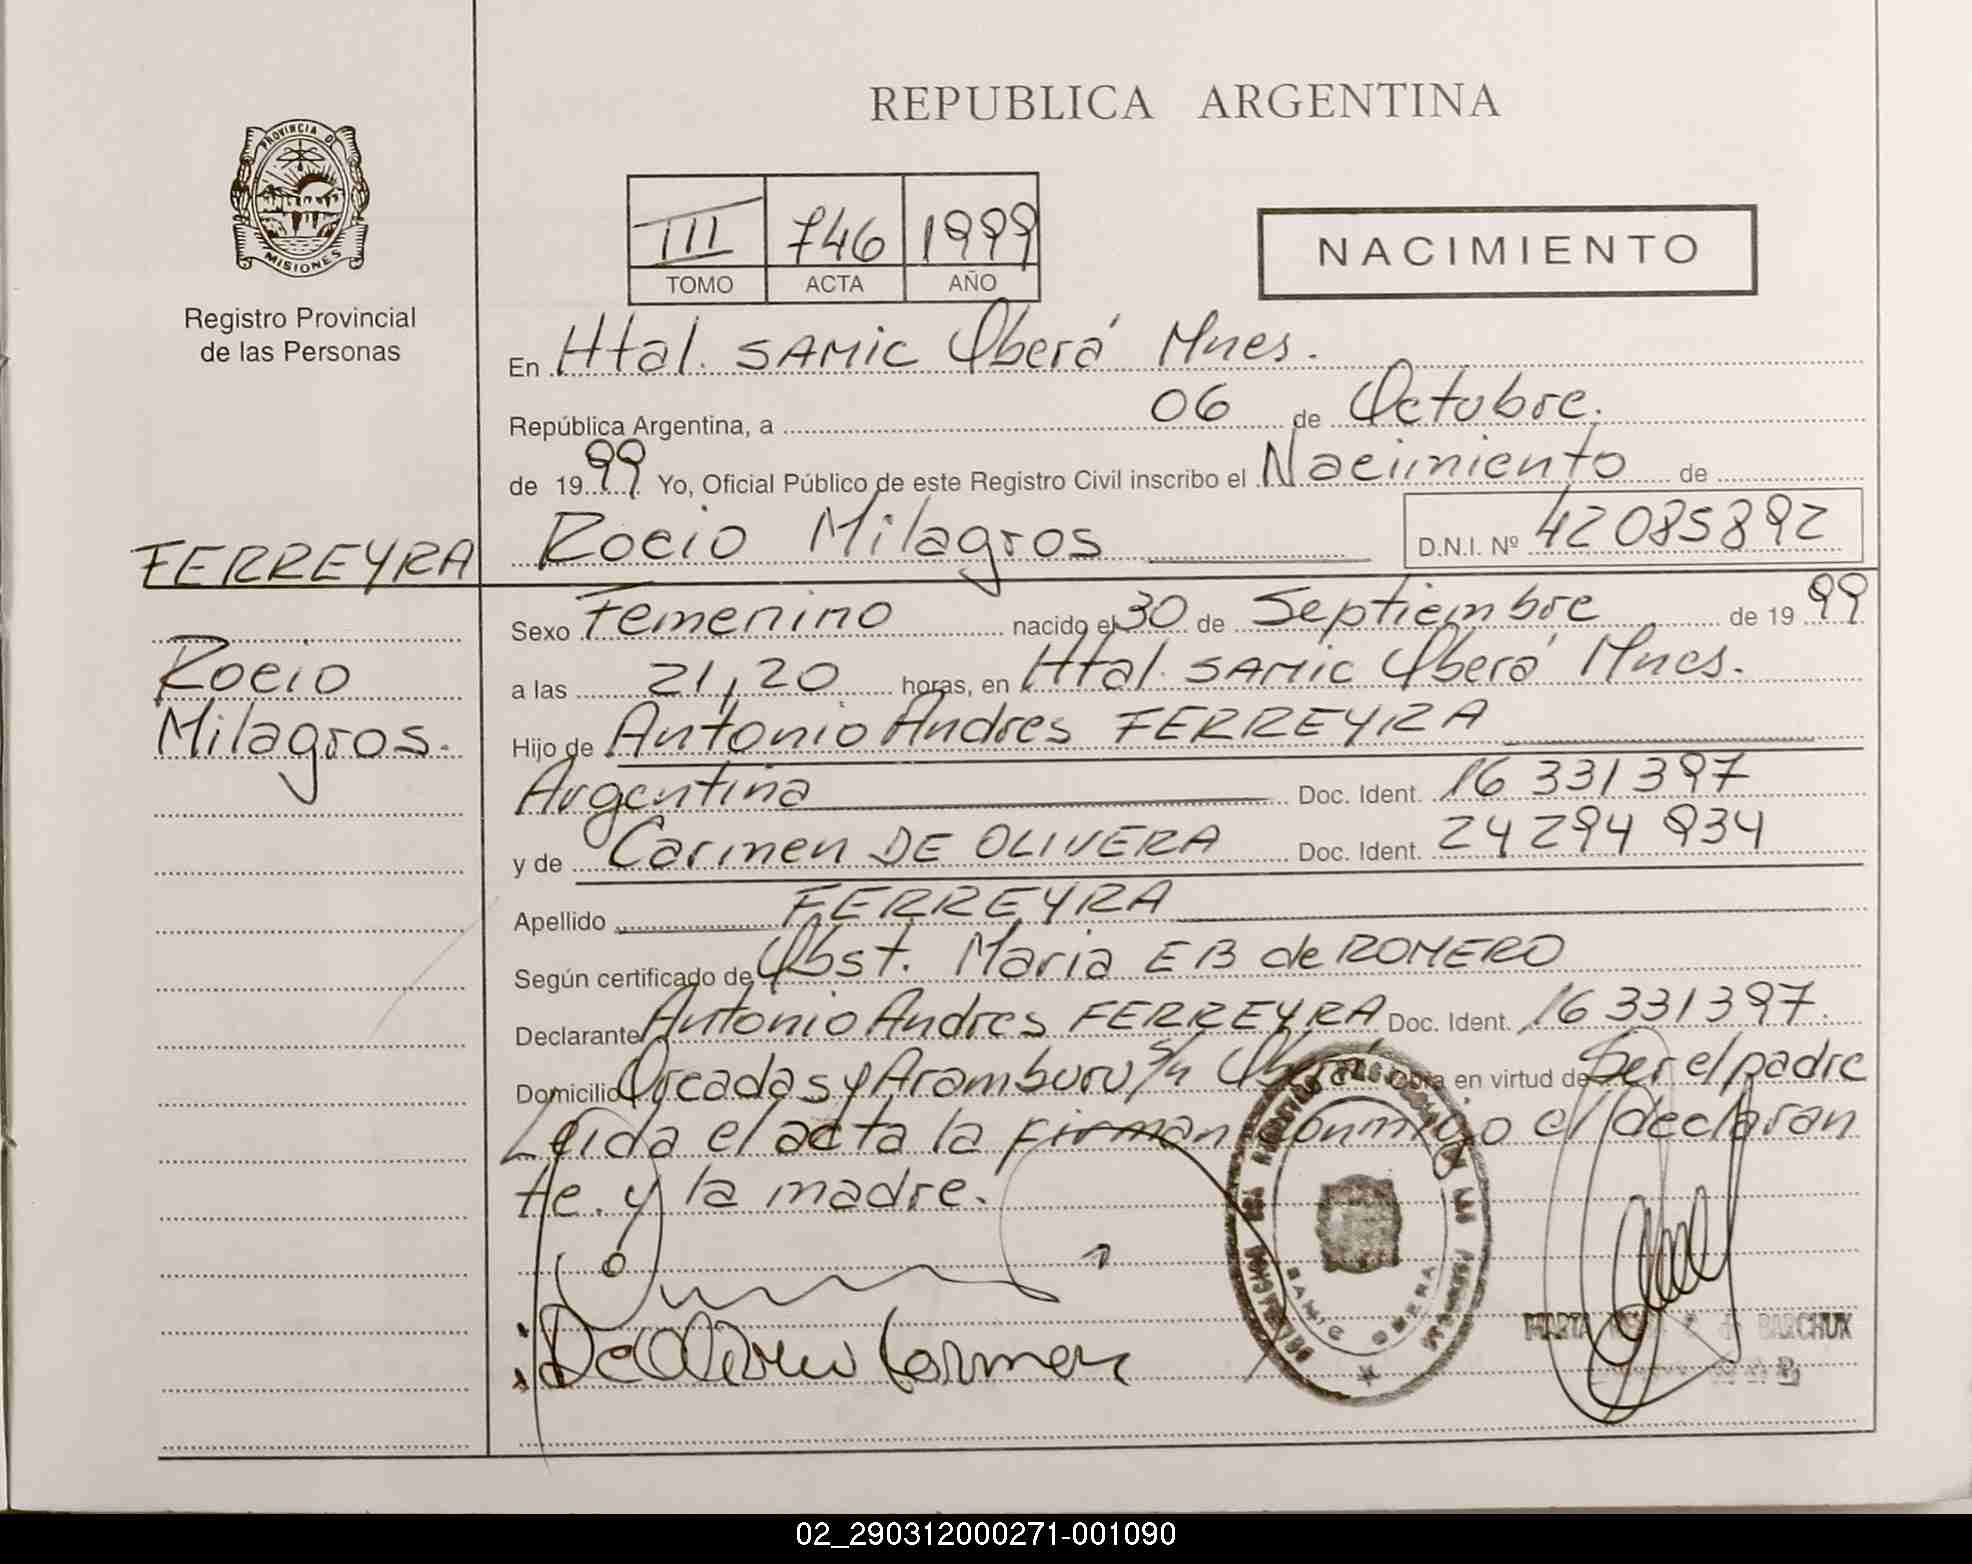 REPUBLICA ARGENTINA
PROVINCIA DE
MISIONES
Registro Provincial
de las Personas
III 746 1999
TOMO ACTA AÑO
NACIMIENTO
En Htal. SAMIC Oberá Mnes.
República Argentina, a 06 de Octubre.
de 1999 Yo, Oficial Público de este Registro Civil inscribo el Nacimiento de
Rocio Milagros D.N.I. Nº 42085892
FERREYRA
Rocio
Milagros.
Sexo Femenino nacido el 30 de Septiembre de 1999
a las 21,20 horas, en Htal. SAMIC Oberá Mnes.
Hijo de Antonio Andres FERREYRA
Argentina Doc. Ident. 16 331397
y de Carmen DE OLIVERA Doc. Ident. 24 294 934
Apellido FERREYRA
Según certificado de Obst. Maria EB de ROMERO
Declarante Antonio Andres FERREYRA Doc. Ident. 16 331397.
Domicilio Orcadas y Aramburu s/n Oberá Obra en virtud de Ser el padre
Leida el acta la firman conmigo el declaran
te. y la madre.
De Olivera Carmen
SAMIC OBERA
MARTA BARCHUK
02_290312000271-001090